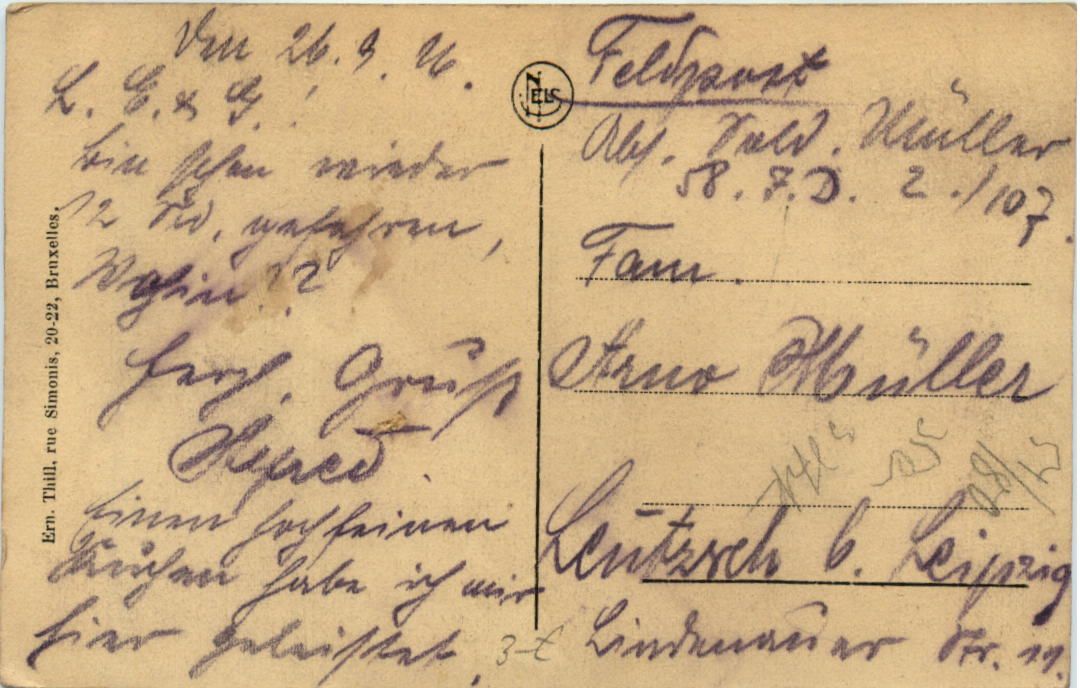 Den 26.9.16.
L. E. & G.!
bin schon wieder
12 Std. gefahren,
Wohin??
Herzl. Gruß
Alfred.
Einen hochfeinen
Kuchen habe ich mir
hier geleistet.
Ern. Thill, rue Simonis, 20-22, Bruxelles.
NELS
Feldpost
Abs. Sold. Müller
58. I.D. 2./107.
Fam.
Arno Müller
Leutzsch b. Leipzig
Lindenauer Str. 11.